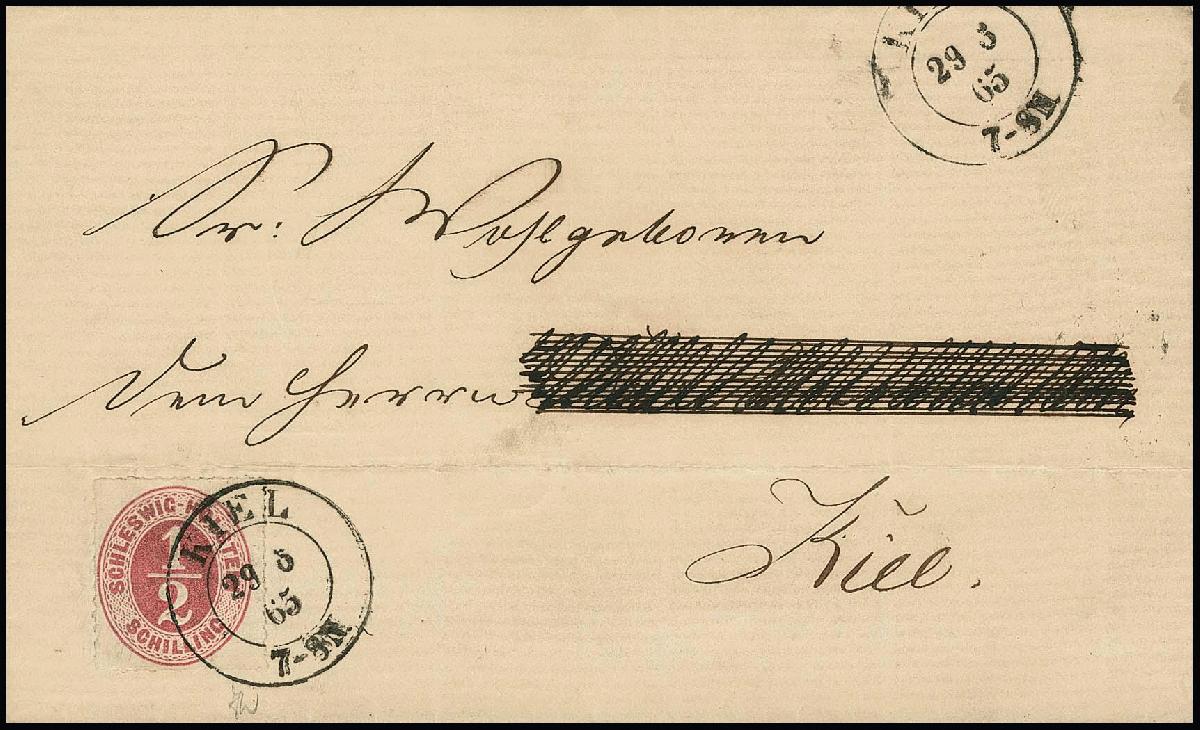 KI
29 5
65
7-8N
Sr: Wohlgeboren
dem Herrn
Kiel.
SCHLESWIG-H
1/2
SCHILLING
KIEL
29 5
65
7-8N